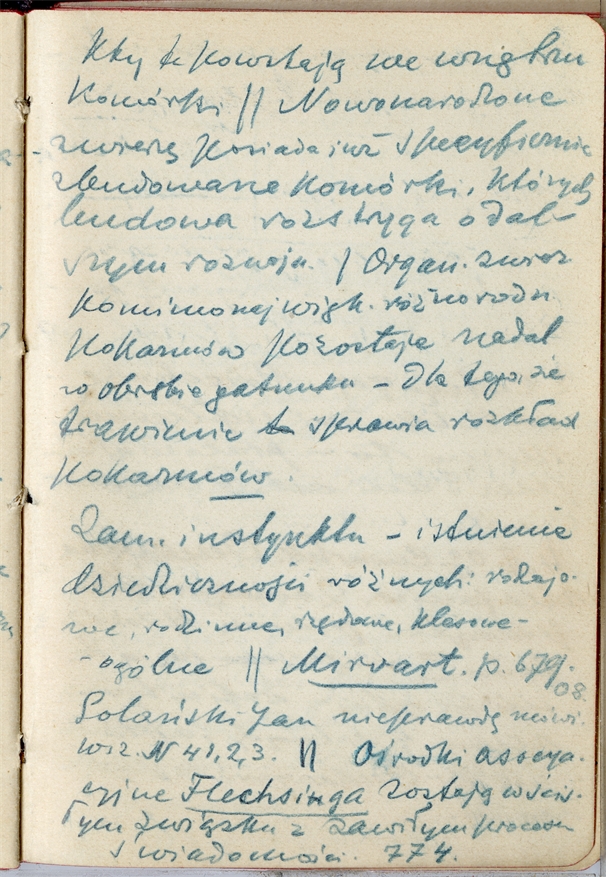 Kty te powstają we wnętrzu
Komórki || Nowonarodzone
zwierzę posiada już specyficznie
zbudowane Komórki, których
budowa rozstrzyga o dal-
szym rozwoju. / Organ. zwierz
Komimo najwięk. różnorodn
Pokarmów pozostaje nadal
w obrębie gatunku – Dla tego, że
trawienie sprawia rozkład
Pokarmów.
Zam. instynktu – istnienie
dziedziczności różnych: rodzajo-
we, rodzinne, rzędowe, klasowe –
– ogólne || Mirvart. p. 679.
08.
Solański Jan mówi
N 41, 2, 3. || Ośrodki assocya-
cyjne Flechsinga zostają w ścis-
łym związku z zawiłym proces
świadomości. 774.